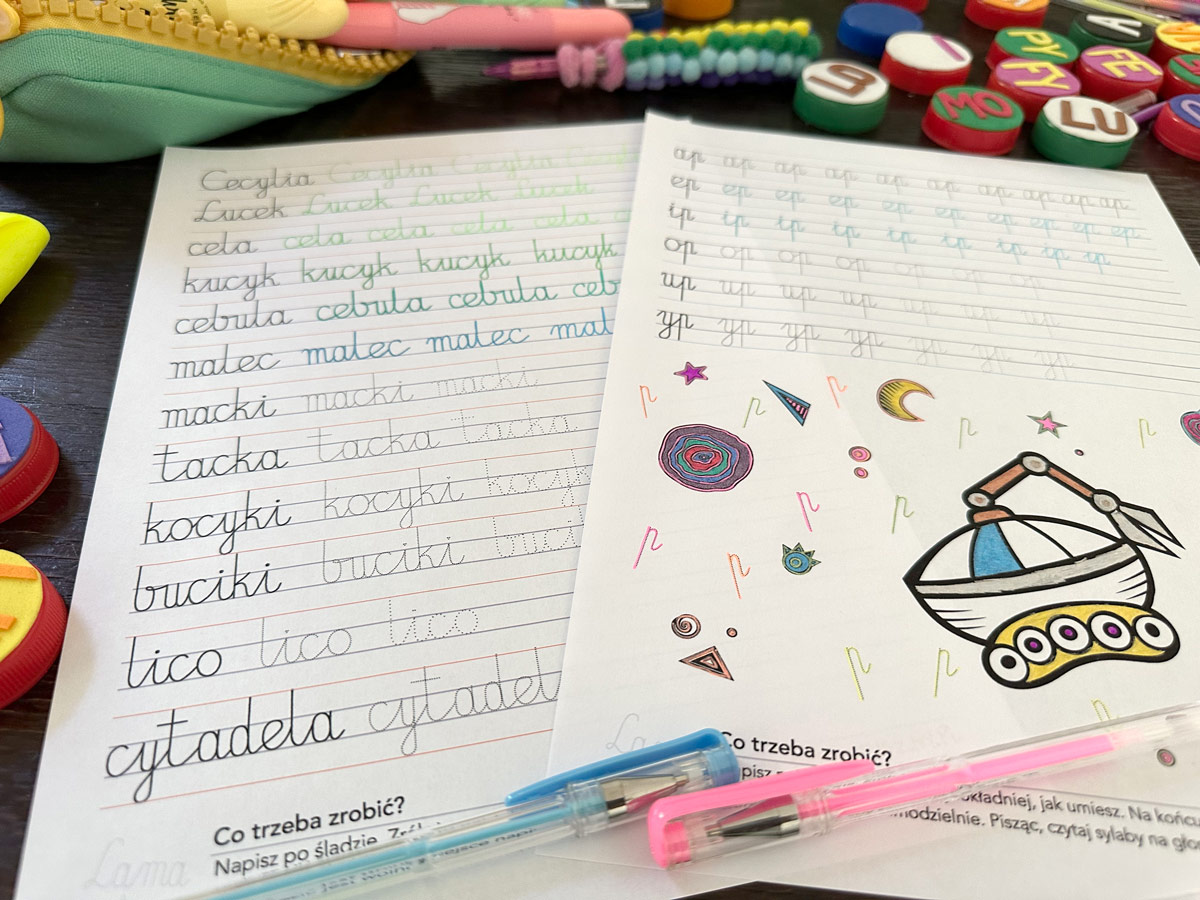 PY
A
FY
FE
MO
LU
Cecylia Cecylia Cecylia
Lucek Lucek Lucek Lucek
cela cela cela cela cela
kucyk kucyk kucyk kucyk
cebula cebula cebula ceb
malec malec malec mal
macki macki macki
tacka tacka tacka
kocyki kocyki kocyk
buciki buciki buci
lico lico lico
cytadela cytadel
Co trzeba zrobić?
Napisz po śladzie.
Lama
ap ap ap ap ap ap ap ap ap ap
ep ep ep ep ep ep ep ep ep ep
ip ip ip ip ip ip ip ip ip
op op op op op op op
up up up up up up up
yp yp yp yp yp yp yp
p p p p
p p
p p
p p
p p
p
Co trzeba zrobić?
apisz
okładniej, jak umiesz. Na końcu
modzielnie. Pisząc, czytaj sylaby na gło